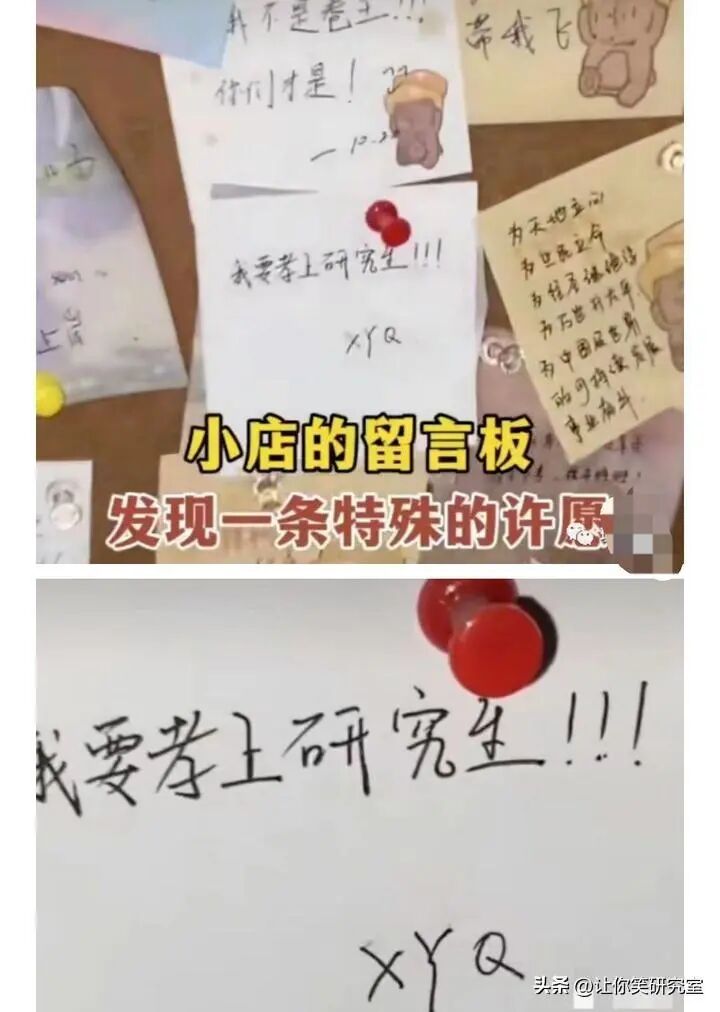 我不是卷王!!!
你们才是!
带我飞
为天地立心
为生民立命
为往圣继绝学
为万世开太平
为中国
的可持续发展
事业奋斗
我要孝上研究生!!!
XYQ
小店的留言板
发现一条特殊的许愿
我要孝上研究生!!!
XYQ
头条 @让你笑研究室